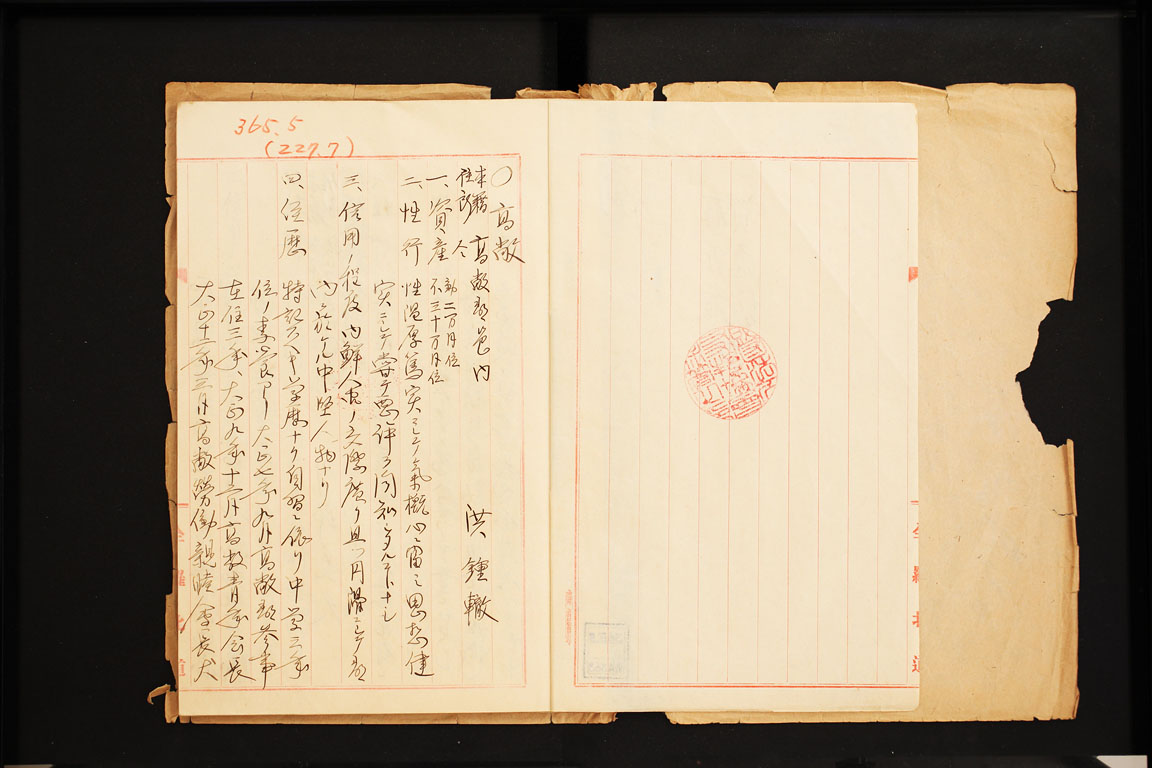 365.5
(227.7)
○ 高敞
本籍 高敞郡邑内 洪鍾轍
住所 仝
一、資産 動 二万円位
不 三十万円位
二、性行 性温厚篤実ニシテ気概心ニ富ミ思想健
実ニシテ嘗テ要
三、信用ノ程度 内鮮人間ノ交際広ク且ツ円滑ニシテ郡
内ニ於ケル中堅人物ナリ
四、経歴 特記スベキ学歴ナク自習ニ依リ中学三年
位ノ素養アリ 大正七年九月高敞郡参事
在任三年、大正九年十二月高敞青年会長
大正十三年三月高敞労働親睦会長大
全羅北道